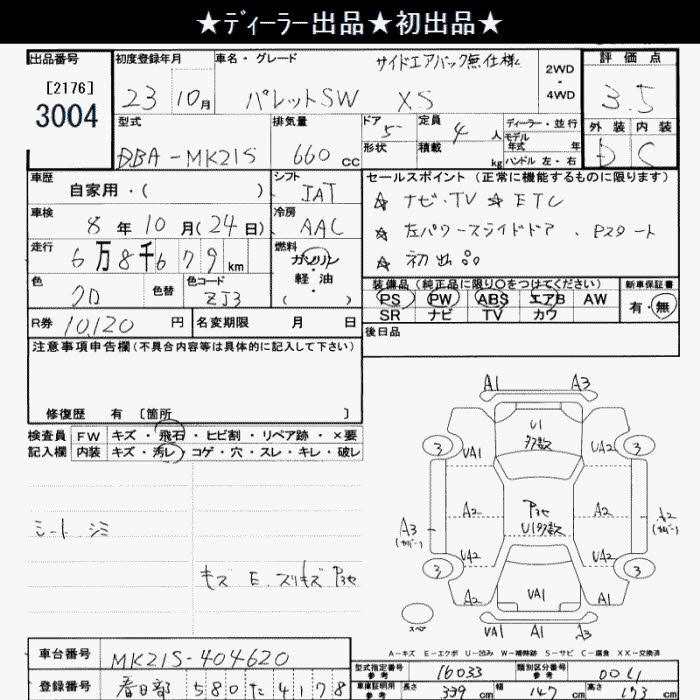 ★ディーラー出品★初出品★
出品番号 [2176] 3004
初度登録年月 23 10月
車名・グレード サイドエアバック無仕様
パレットSW XS
2WD・4WD
評価点 3.5
外装 内装 D C
型式 DBA-MK21S
排気量 660 cc
ドア 5 定員 4 人
形状 積載 kg
ディーラー・並行
モデル年式 年
ハンドル 左・右
車歴 自家用・( )
シフト IAT
車検 8年10月(24日)
冷房 AAC
走行 6万8千679km
燃料 ガソリン・軽油・( )
色 クロ 色替 色コード ZJ3
R券 10,120 円 名変期限 月 日
セールスポイント(正常に機能するものに限ります)
☆ ナビ・TV ☆ ETC
☆ 左パワースライドドア、Pスタート
☆ 初出品
装備品(純正品に限り○をつけてください) 新車保証書
PS PW ABS エアB AW 有・無
SR ナビ TV カワ
後日品
注意事項申告欄(不具合内容等は具体的に記入して下さい)
修復歴 有 [箇所 ]
検査員 FW キズ・飛石・ヒビ割・リペア跡・×要
記入欄 内装 キズ・汚レ・コゲ・穴・スレ・キレ・破レ
シート シミ
キズ E.スリキズ Pヨセ
A1 A3
U1 タタ数
3 UA1 UA2 3
A2 Pヨセ A2
U1タタ数
A3 (カバー) A2 (カバー)
UA2 UA2
3 3
A2 UA1 A1
スペア
UA1 A1 A3
A-キズ E-エクボ U-凹み W-補修跡 S-サビ C-腐食 XX-交換済
車台番号 MK21S-404620
登録番号 春日部 580 た 4178
型式指定番号 参考 16033 類別区分番号 参考 0011
車庫証明用 参考 長さ 339 cm 幅 147 cm 高さ 173 cm